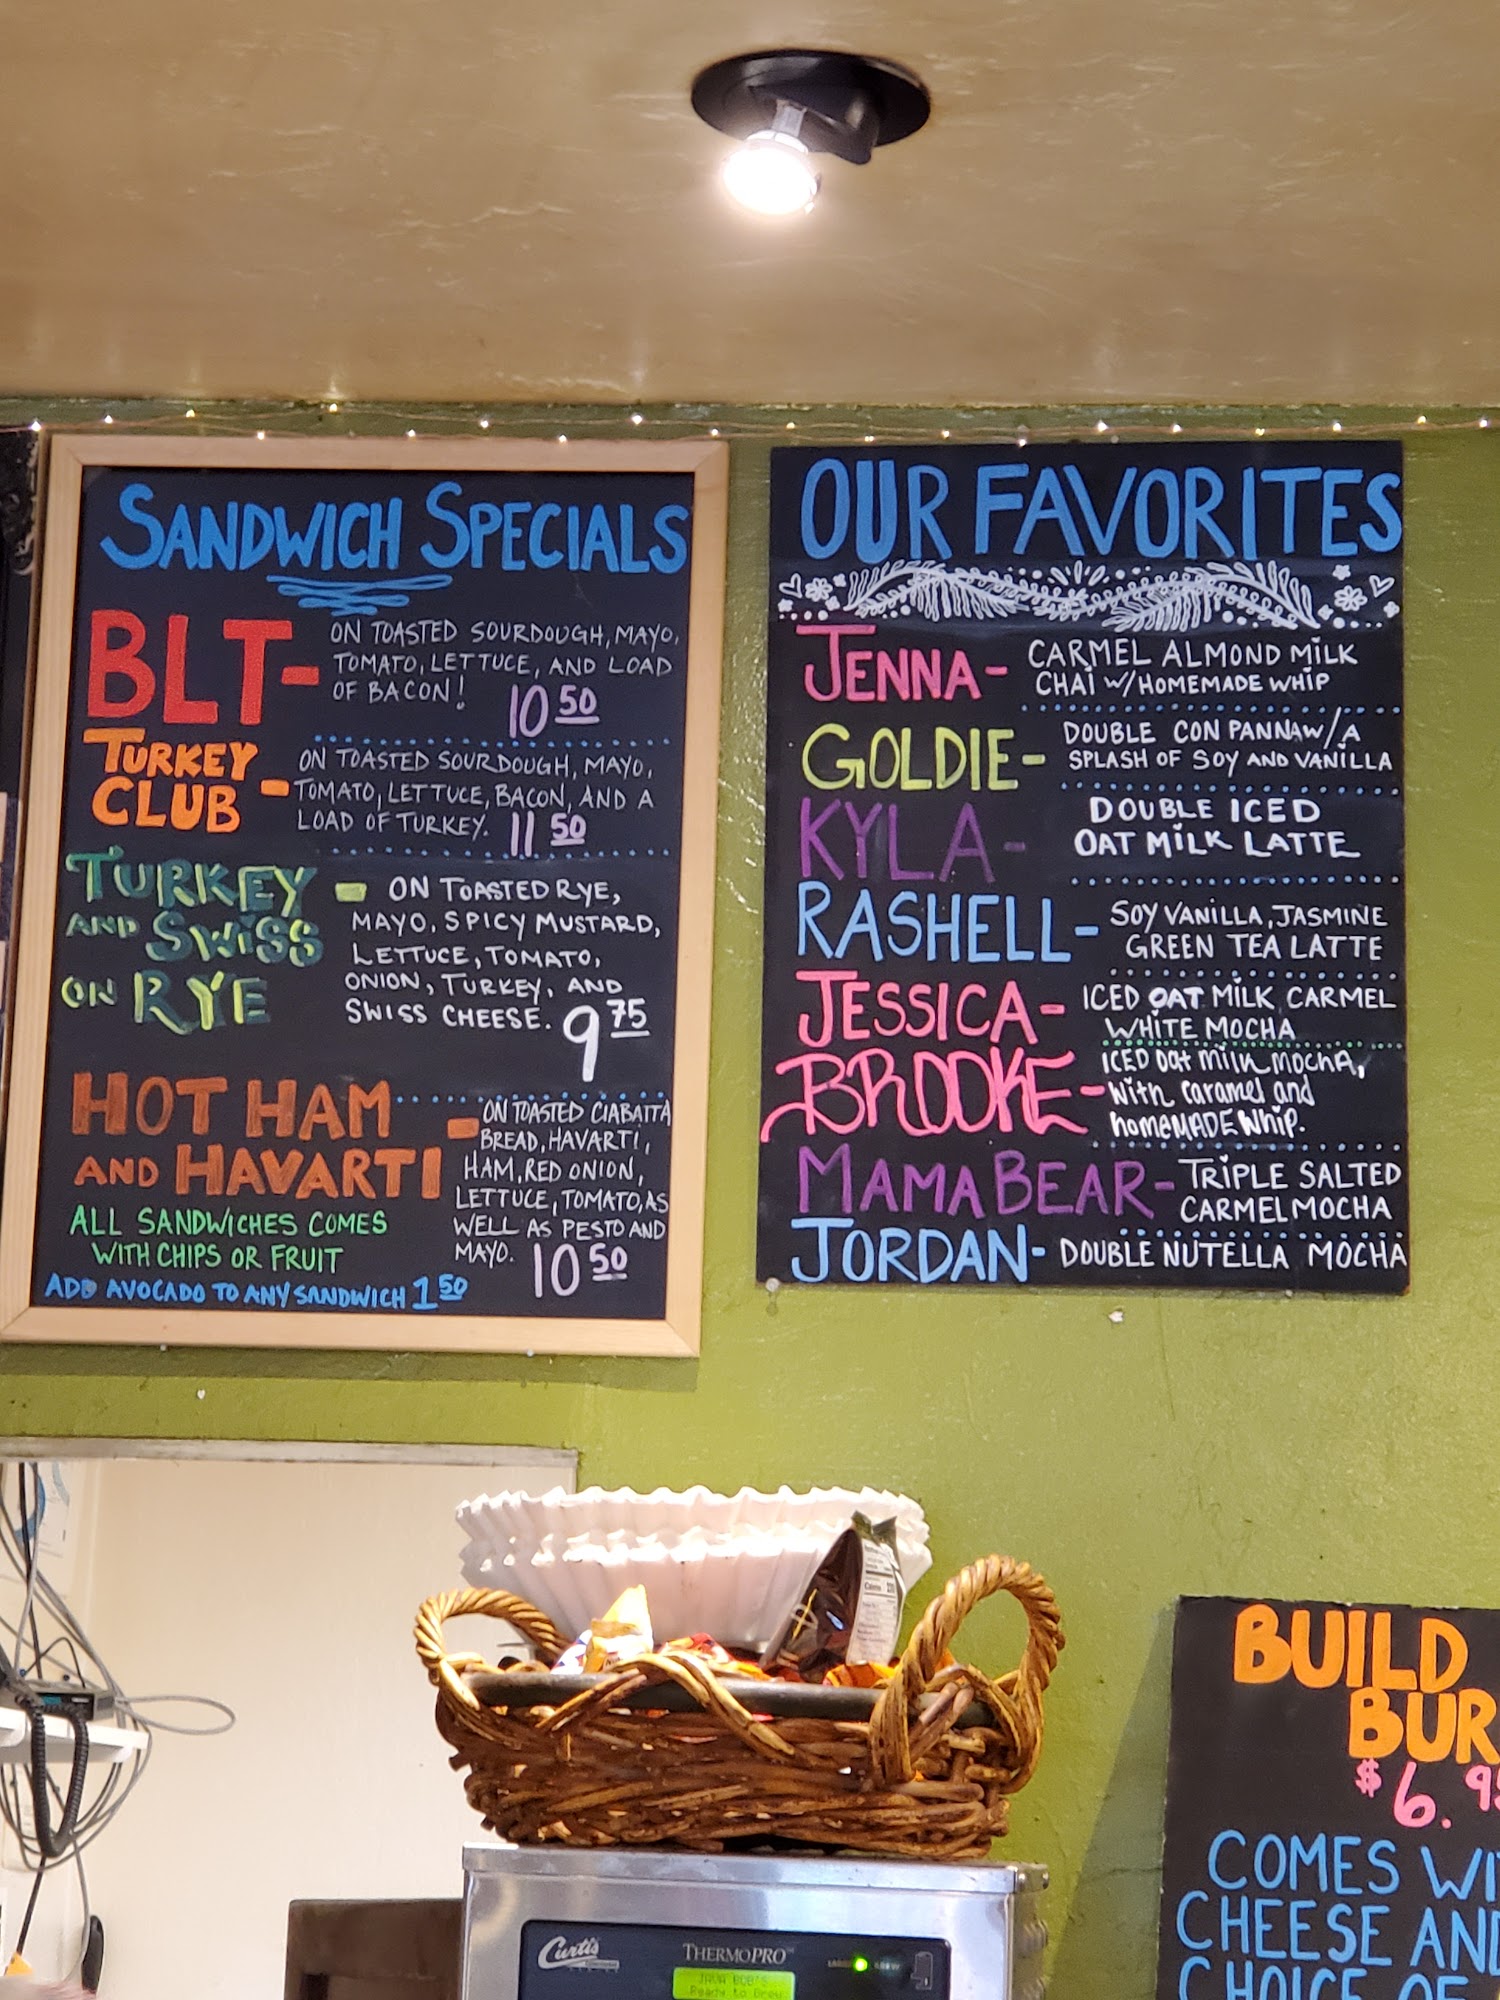 SANDWICH SPECIALS
BLT- ON TOASTED SOURDOUGH, MAYO,
TOMATO, LETTUCE, AND LOAD
OF BACON! 10 50
TURKEY
CLUB - ON TOASTED SOURDOUGH, MAYO,
TOMATO, LETTUCE, BACON, AND A
LOAD OF TURKEY. 11 50
TURKEY
AND SWISS
ON RYE - ON TOASTED RYE,
MAYO, SPICY MUSTARD,
LETTUCE, TOMATO,
ONION, TURKEY, AND
SWISS CHEESE. 9 75
HOT HAM
AND HAVARTI - ON TOASTED CIABATTA
BREAD, HAVARTI,
HAM, RED ONION,
LETTUCE, TOMATO, AS
WELL AS PESTO AND
MAYO. 10 50
ALL SANDWICHES COMES
WITH CHIPS OR FRUIT
ADD AVOCADO TO ANY SANDWICH 1 50
OUR FAVORITES
JENNA- CARMEL ALMOND MILK
CHAI W/HOMEMADE WHIP
GOLDIE- DOUBLE CON PANNA W/A
SPLASH OF SOY AND VANILLA
KYLA- DOUBLE ICED
OAT MILK LATTE
RASHELL- SOY VANILLA, JASMINE
GREEN TEA LATTE
JESSICA- ICED OAT MILK CARMEL
WHITE MOCHA
BROOKE- ICED oat milk MOCHA,
with caramel and
homeMADE Whip.
MAMA BEAR- TRIPLE SALTED
CARMEL MOCHA
JORDAN- DOUBLE NUTELLA MOCHA
BUILD
BUR
$6.95
COMES WI
CHEESE AN
CHOICE OF
Curtis
THERMOPRO
JAVA BOB'S
Ready to Brew